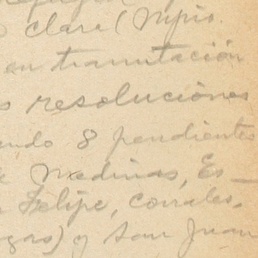 Clara (Mpio.
en tramitación
resoluciones
ando 8 pendientes
Medinas, Es-
Felipe, Corrales,
gas) y San Juan